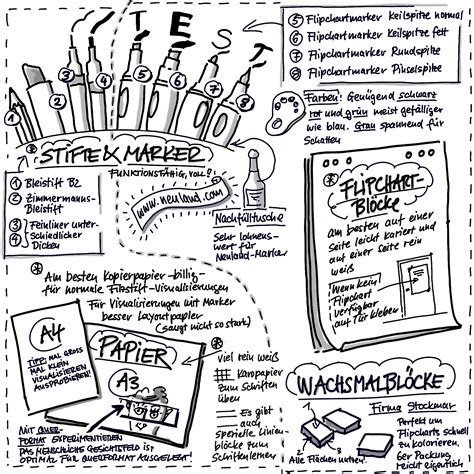 TEST
⑤ Flipchartmarker Keilspitze normal
⑥ Flipchartmarker Keilspitze fett
⑦ Flipchartmarker Rundspitze
⑧ Flipchartmarker Pinselspitze
① ② ③ ④ ⑤ ⑥ ⑦ ⑧
Farben: Genügend schwarz
rot und grün meist gefälliger
wie blau. Grau spannend für
Schatten
* STIFTE & MARKER
FUNKTIONSFÄHIG, VOLL!
① Bleistift B2
② Zimmermanns-
Bleistift
③ Feinliner unter-
④ schiedlicher
Dicken
www.neuland.com
Nachfülltusche
Sehr lohnens-
wert für
Neuland-Marker
* FLIPCHART-
BLÖCKE
am besten auf einer
Seite leicht kariert und
auf einer Seite rein
weiß
Wenn kein
Flipchart
verfügbar
auf Tür kleben
* Am besten Kopierpapier - billig -
für normale Filzstift-Visualisierungen
Für Visualisierungen mit Marker
besser Layoutpapier
(saugt nicht so stark)
A4
TIPP: MAL GROSS
MAL KLEIN
VISUALISIEREN
AUSPROBIEREN!
PAPIER
A3
* Viel rein weiß
Karopapier
zum Schriften
üben
Es gibt
auch
spezielle Linien-
blöcke zum
Schriftenlernen
MIT QUER-
FORMAT EXPERIMENTIEREN
DAS MENSCHLICHE GESICHTSFELD IST
OPTIMAL FÜR QUERFORMAT AUSGELEGT!
WACHSMALBLÖCKE
Firma Stockmar
Perfekt um
Flipcharts schnell
zu kolorieren.
6er Packung
reicht eigentlich
Alle Flächen nutzen!